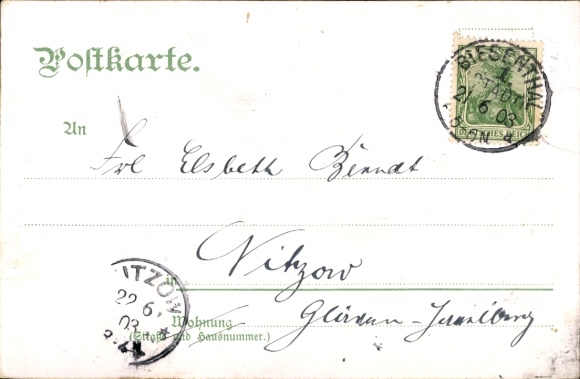 Postkarte.
BIESENTHAL
1.
STADT
21 6 03
5-6N
DEUTSCHES REICH
An
Frl Elsbeth Berndt
Nitzow
in
ITZOW
22 6
03
Wohnung
(Straße und Hausnummer.)
Glöwen-